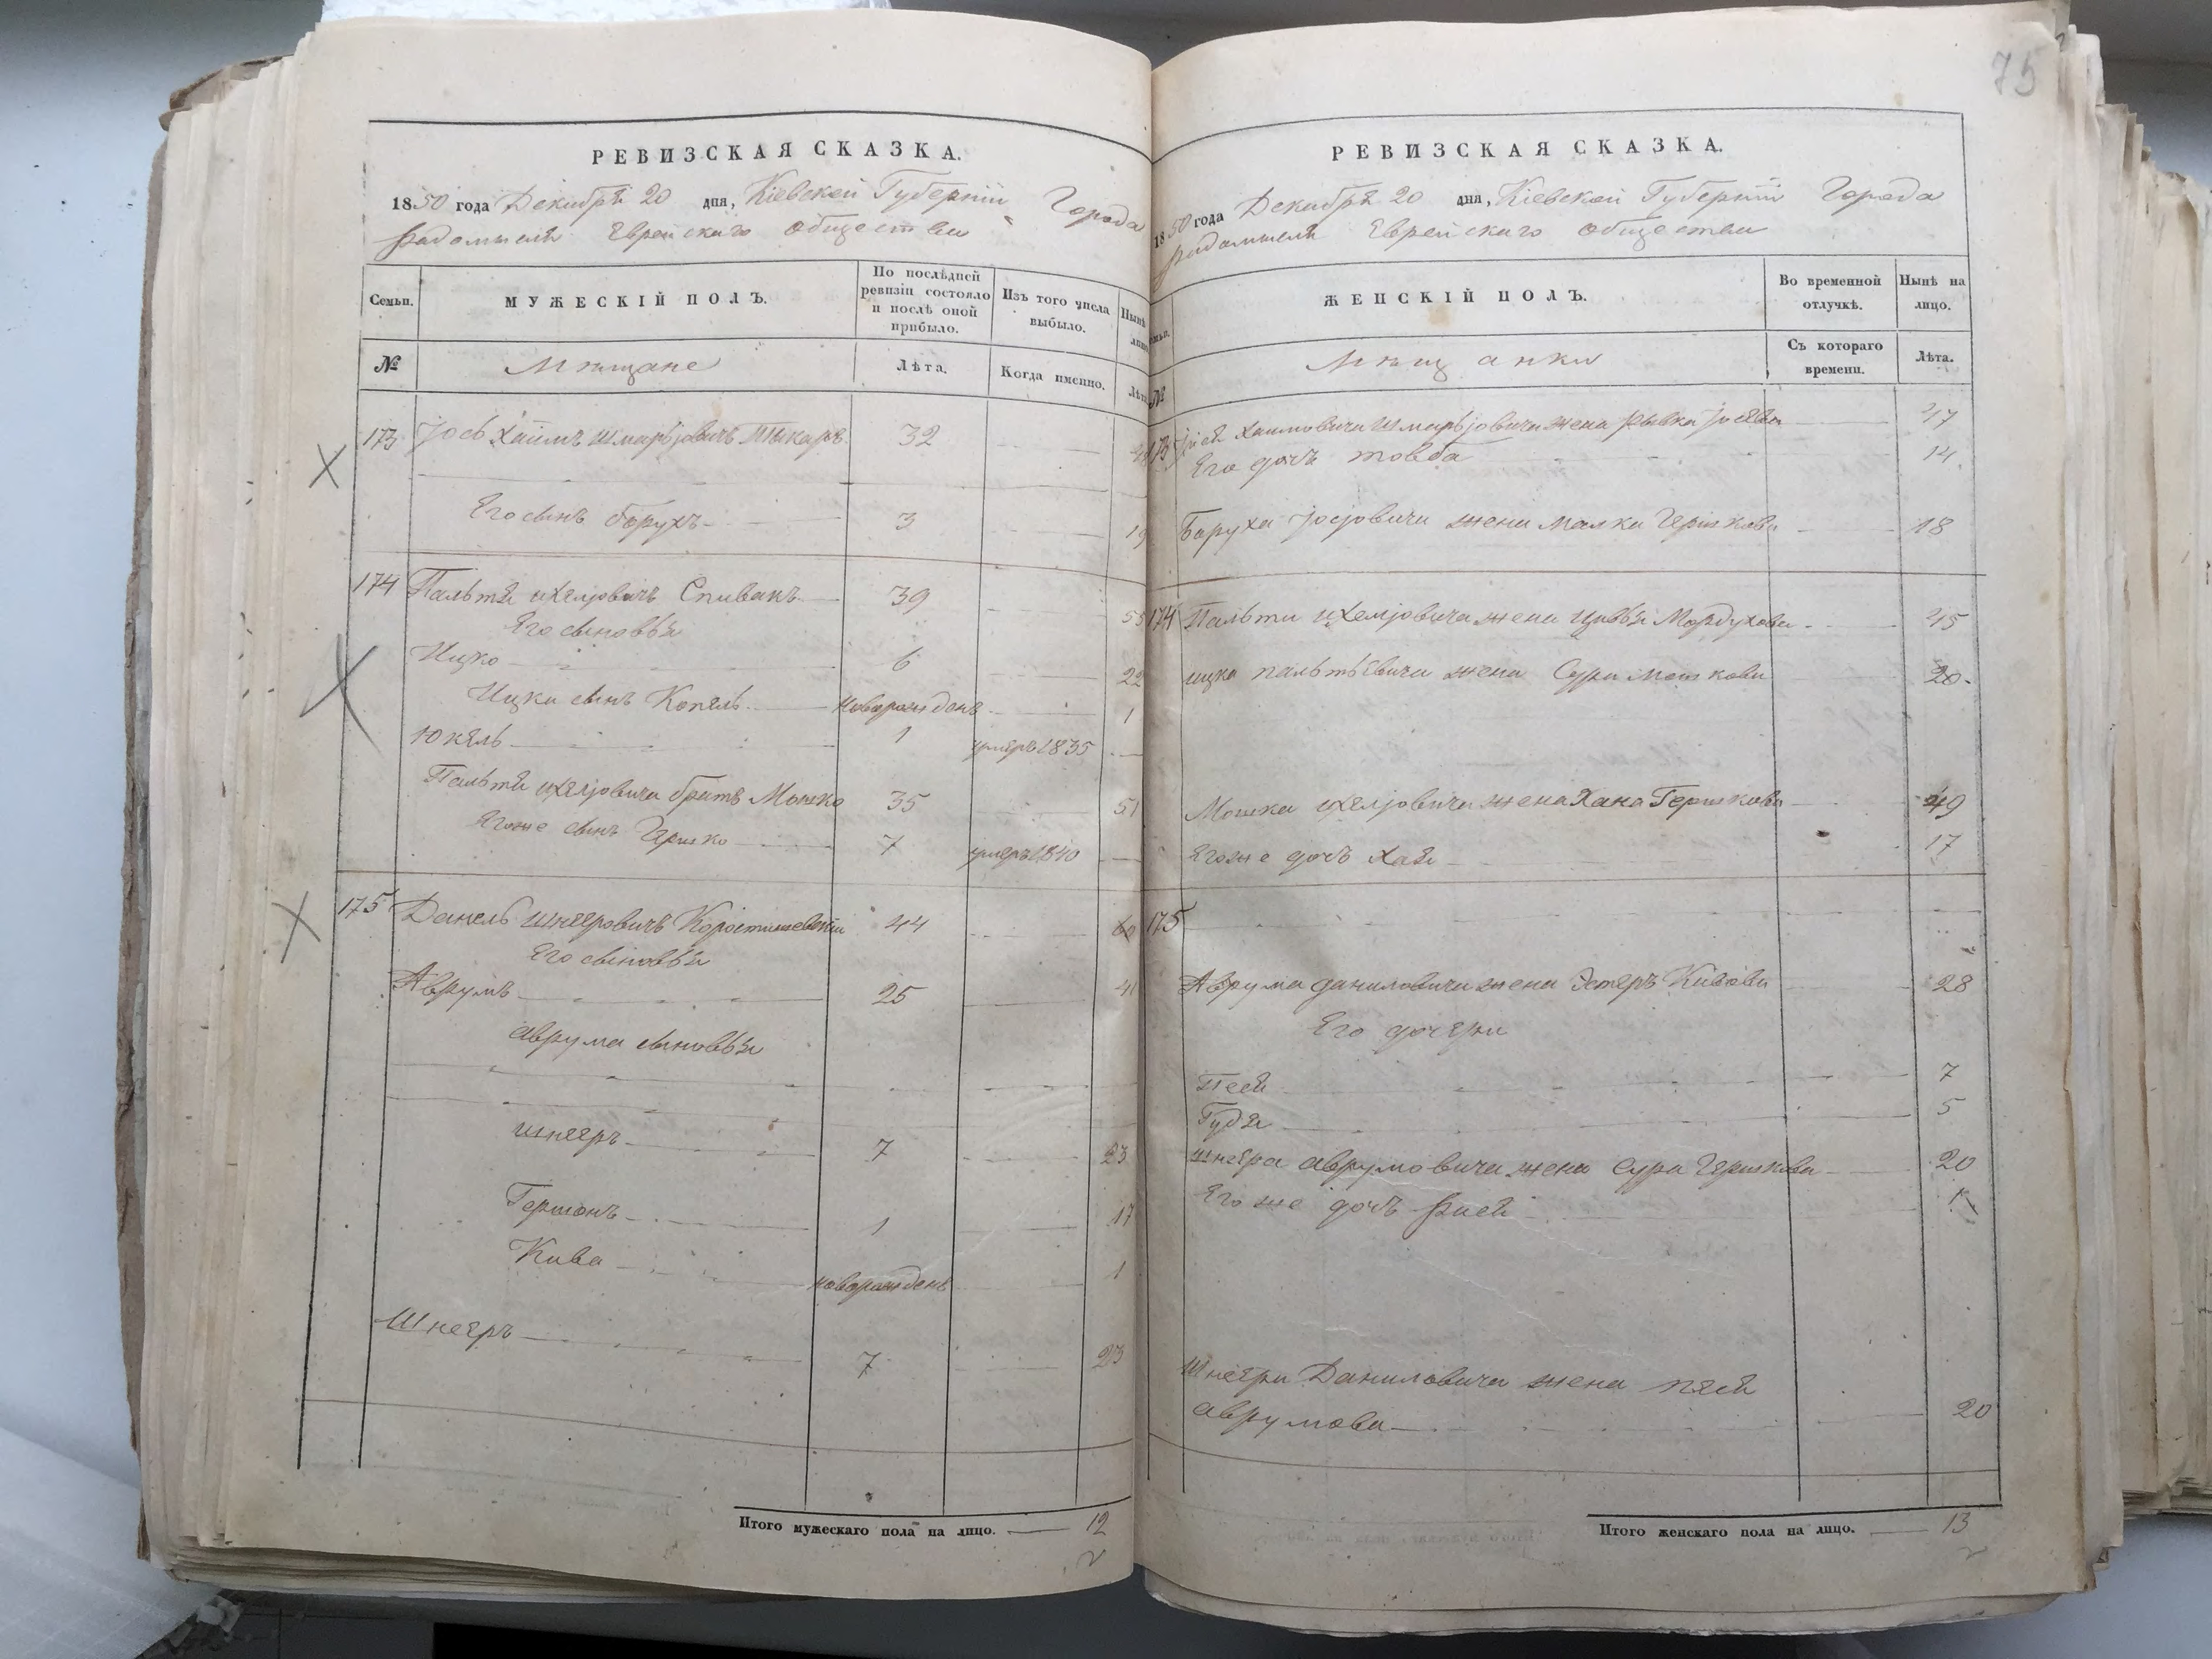 75
РЕВИЗСКАЯ СКАЗКА.
1850 года Декабря 20 дня, Кіевской Губерніи Города
Радомысля Еврейскаго Общества
Семьи.
МУЖЕСКІЙ ПОЛЪ.
По послѣдней ревизіи состояло и послѣ оной прибыло.
Изъ того числа выбыло.
Нынѣ
№
Мѣщане
Лѣта.
Когда именно.
Лѣта
173 Іось Хаимъ Шмарьіовичъ 32
Его сынъ Борухъ 3 19
174 Пальтя Ихелјовичъ Спивакъ 39 55
Его сыновья
Ицко 6 22
Ицки сынъ Копель новорожденъ 1
Юкель 1 умеръ 1835
Пальти Ихелјовича братъ Мошко 35 51
Его же сынъ Гершко 7 умеръ 1840
175 Данель Шнееровичъ Коростишевскій 44 60
Его сыновья
Аврумъ 25 41
Аврума сыновья
Шнееръ 7 23
Гершонъ 1 17
Кива новорожденъ 1
Шнееръ 7 23
Итого мужескаго пола на лицо. 12
РЕВИЗСКАЯ СКАЗКА.
1850 года Декабря 20 дня, Кіевской Губерніи Города
Радомысля Еврейскаго Общества
ЖЕНСКІЙ ПОЛЪ.
Во временной отлучкѣ.
Нынѣ на лицо.
№
Мѣщанки
Съ котораго времени.
Лѣта.
173 Іося Хаимовича Шмарьіовича жена Рывка Іосева 47
Его дочъ Товба 14
Боруха Іосіовича жена Малка Гершкова 18
174 Пальти Ихелјовича жена Цивья Мордухова 45
Ицка Пальтьевича жена Сура Мошкова 20
Мошка Ихелјовича жена Хана Гершкова 49
Его же дочъ Хая 17
175
Аврума Даниловича жена Эстеръ Кивова 28
Его дочери
Песя 7
Гудя 5
Шнеера Аврумовича жена Сура Гершкова 20
Его же дочъ Рися 1
Шнеера Даниловича жена Песя
Аврумова 20
Итого женскаго пола на лицо. 13